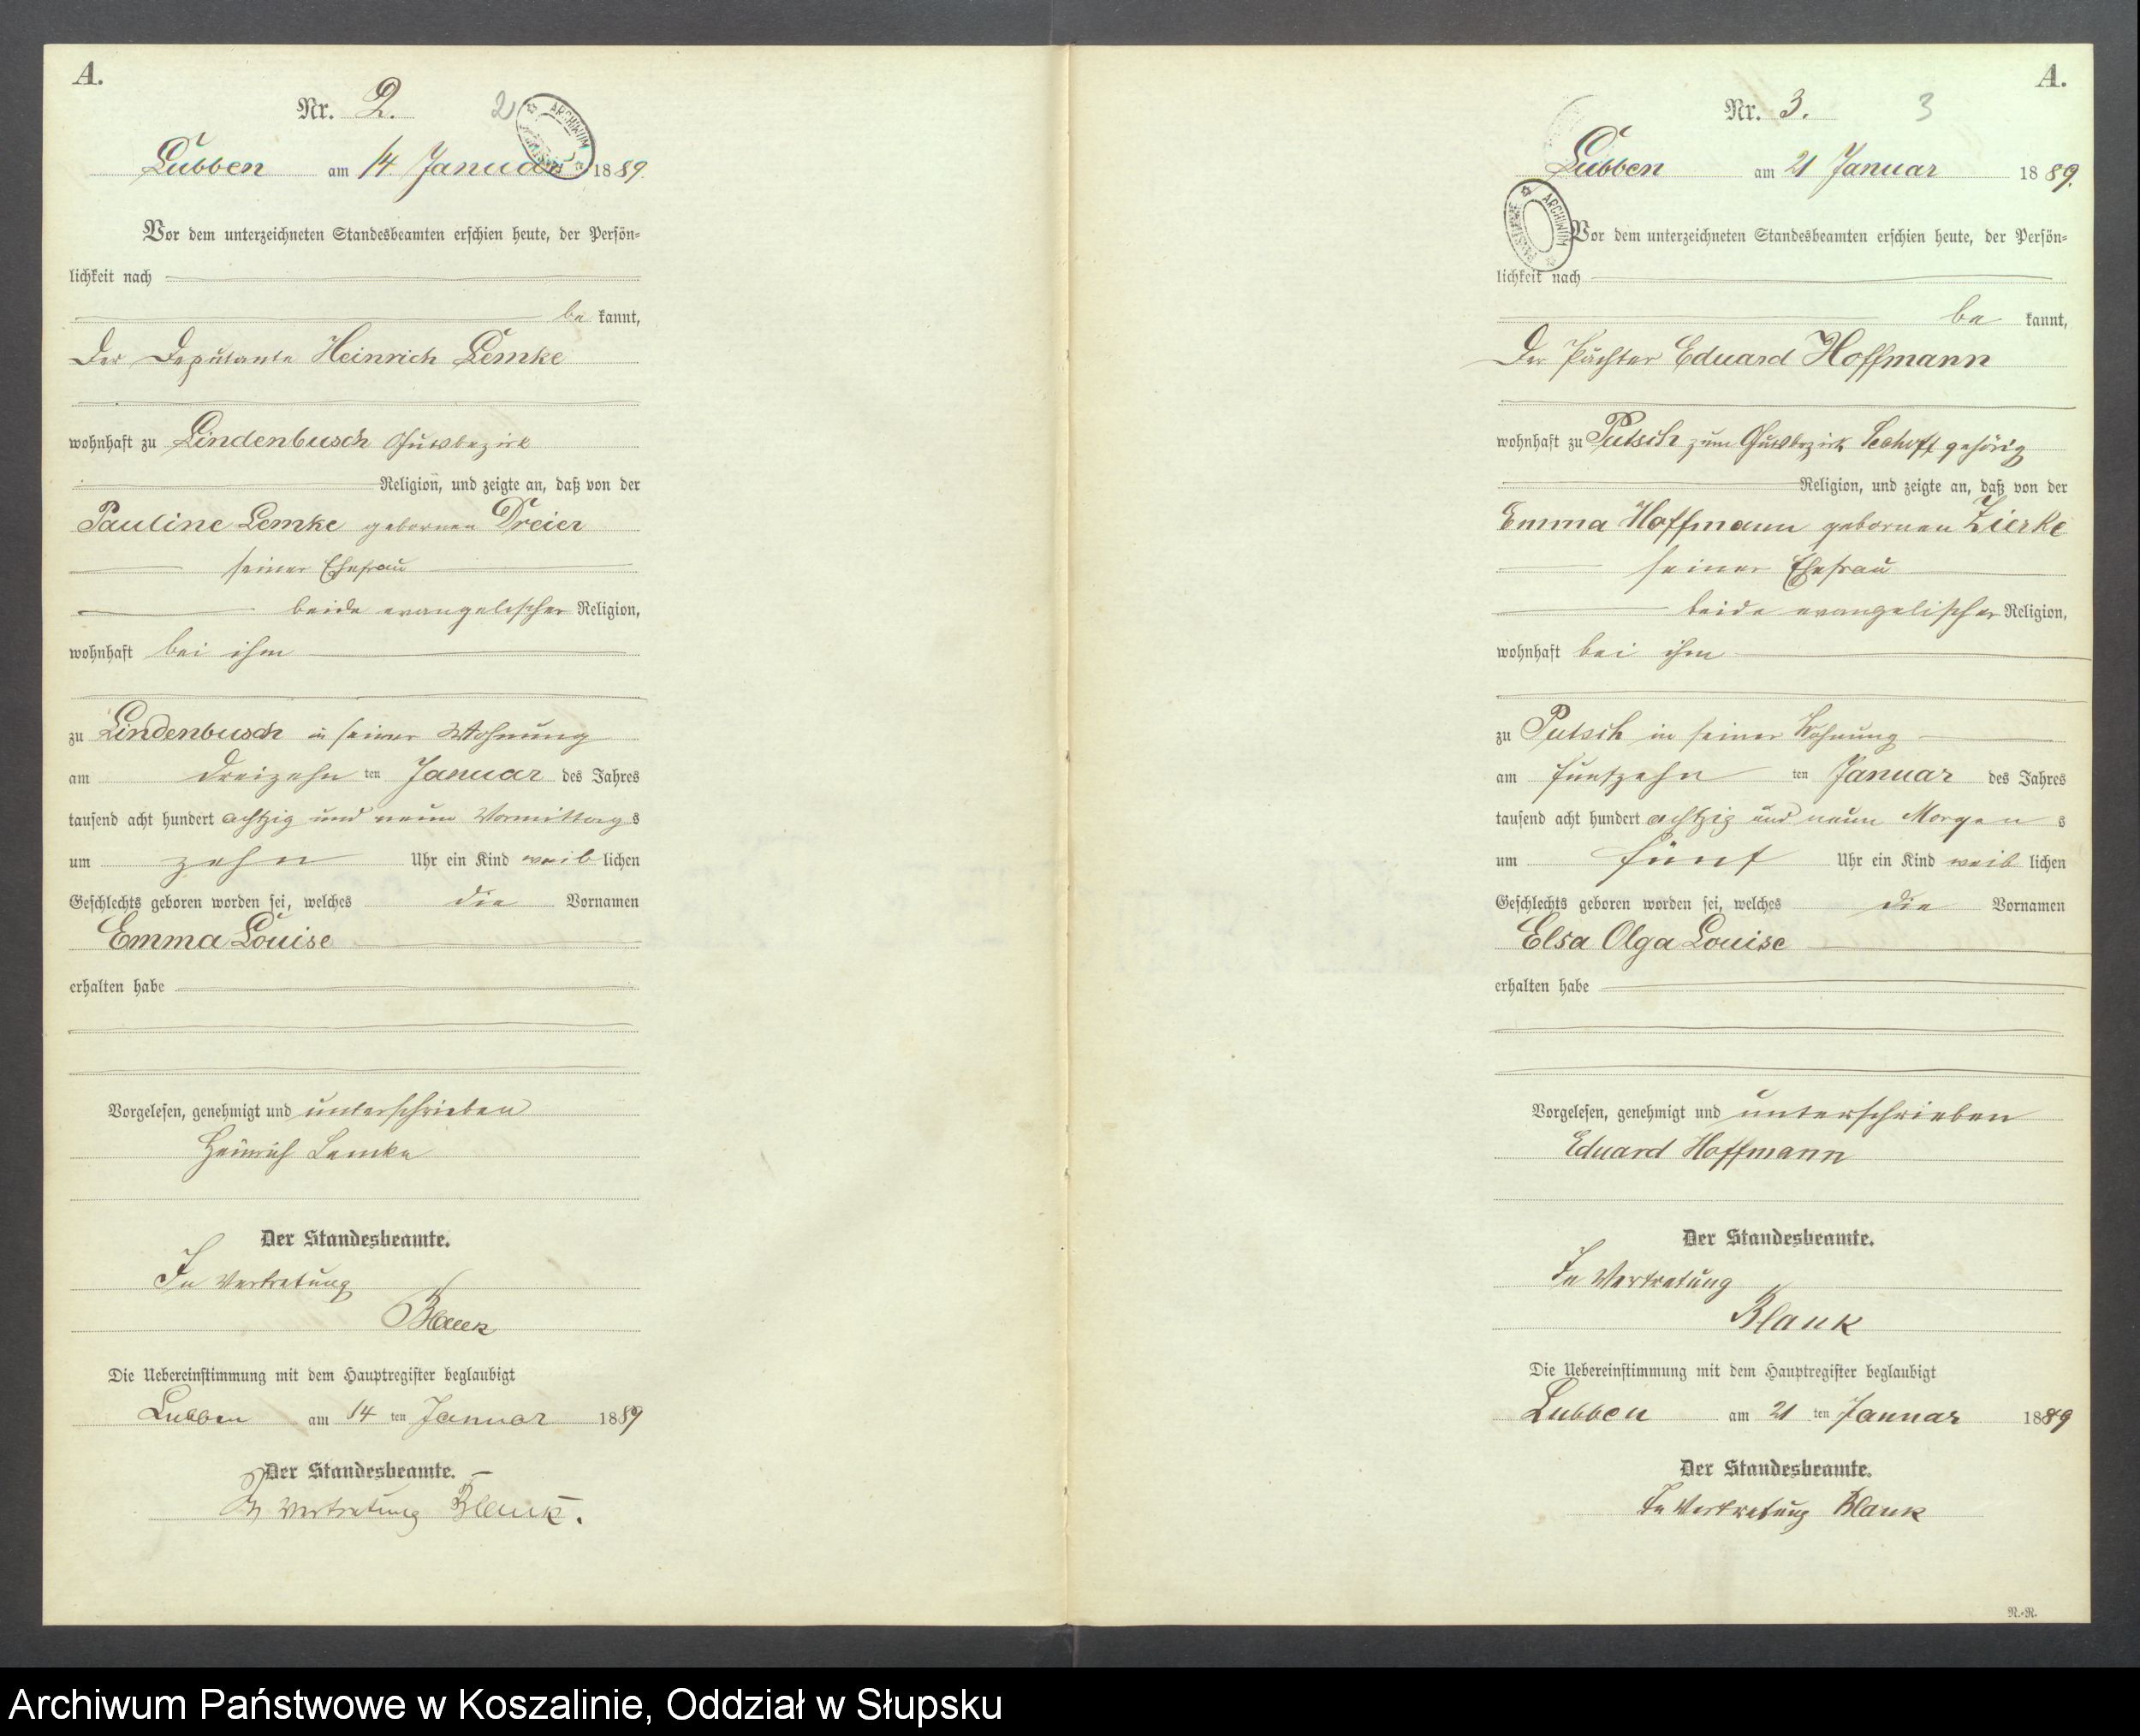 A.
Nr. 2.
2
Lübben am 14 Januar 1889.
Vor dem unterzeichneten Standesbeamten erschien heute, der Persön-
lichkeit nach
be kannt,
Der Deputante Heinrich Lemke
wohnhaft zu Lindenbusch Gutsbezirk
Religion, und zeigte an, daß von der
Pauline Lemke gebornen Dreier
seiner Ehefrau
beide evangelischer Religion,
wohnhaft bei ihm
zu Lindenbusch in seiner Wohnung
am dreizehn ten Januar des Jahres
tausend acht hundert achtzig und neun Vormittag s
um zehn Uhr ein Kind weib lichen
Geschlechts geboren worden sei, welches die Vornamen
Emma Louise
erhalten habe
Vorgelesen, genehmigt und unterschrieben
Heinrich Lemke
Der Standesbeamte.
In Vertretung
Blank
Die Uebereinstimmung mit dem Hauptregister beglaubigt
Lubben am 14 ten Januar 1889
Der Standesbeamte.
In Vertretung Blank.
A.
Nr. 3.
3
Lübben am 21 Januar 1889.
ARCHIWUM
Vor dem unterzeichneten Standesbeamten erschien heute, der Persön-
lichkeit nach
be kannt,
Der Pächter Eduard Hoffmann
wohnhaft zu Putsch zum Gutsbezirk gehörig
Religion, und zeigte an, daß von der
Emma Hoffmann gebornen Zierke
seiner Ehefrau
beide evangelischer Religion,
wohnhaft bei ihm
zu Putsch in seiner Wohnung
am fünfzehn ten Januar des Jahres
tausend acht hundert achtzig und neun Morgen s
um fünf Uhr ein Kind weib lichen
Geschlechts geboren worden sei, welches die Vornamen
Elsa Olga Louise
erhalten habe
Vorgelesen, genehmigt und unterschrieben
Eduard Hoffmann
Der Standesbeamte.
In Vertretung
Blank
Die Uebereinstimmung mit dem Hauptregister beglaubigt
Lubben am 21 ten Januar 1889
Der Standesbeamte.
In Vertretung Blank
R.-R.
Archiwum Państwowe w Koszalinie, Oddział w Słupsku